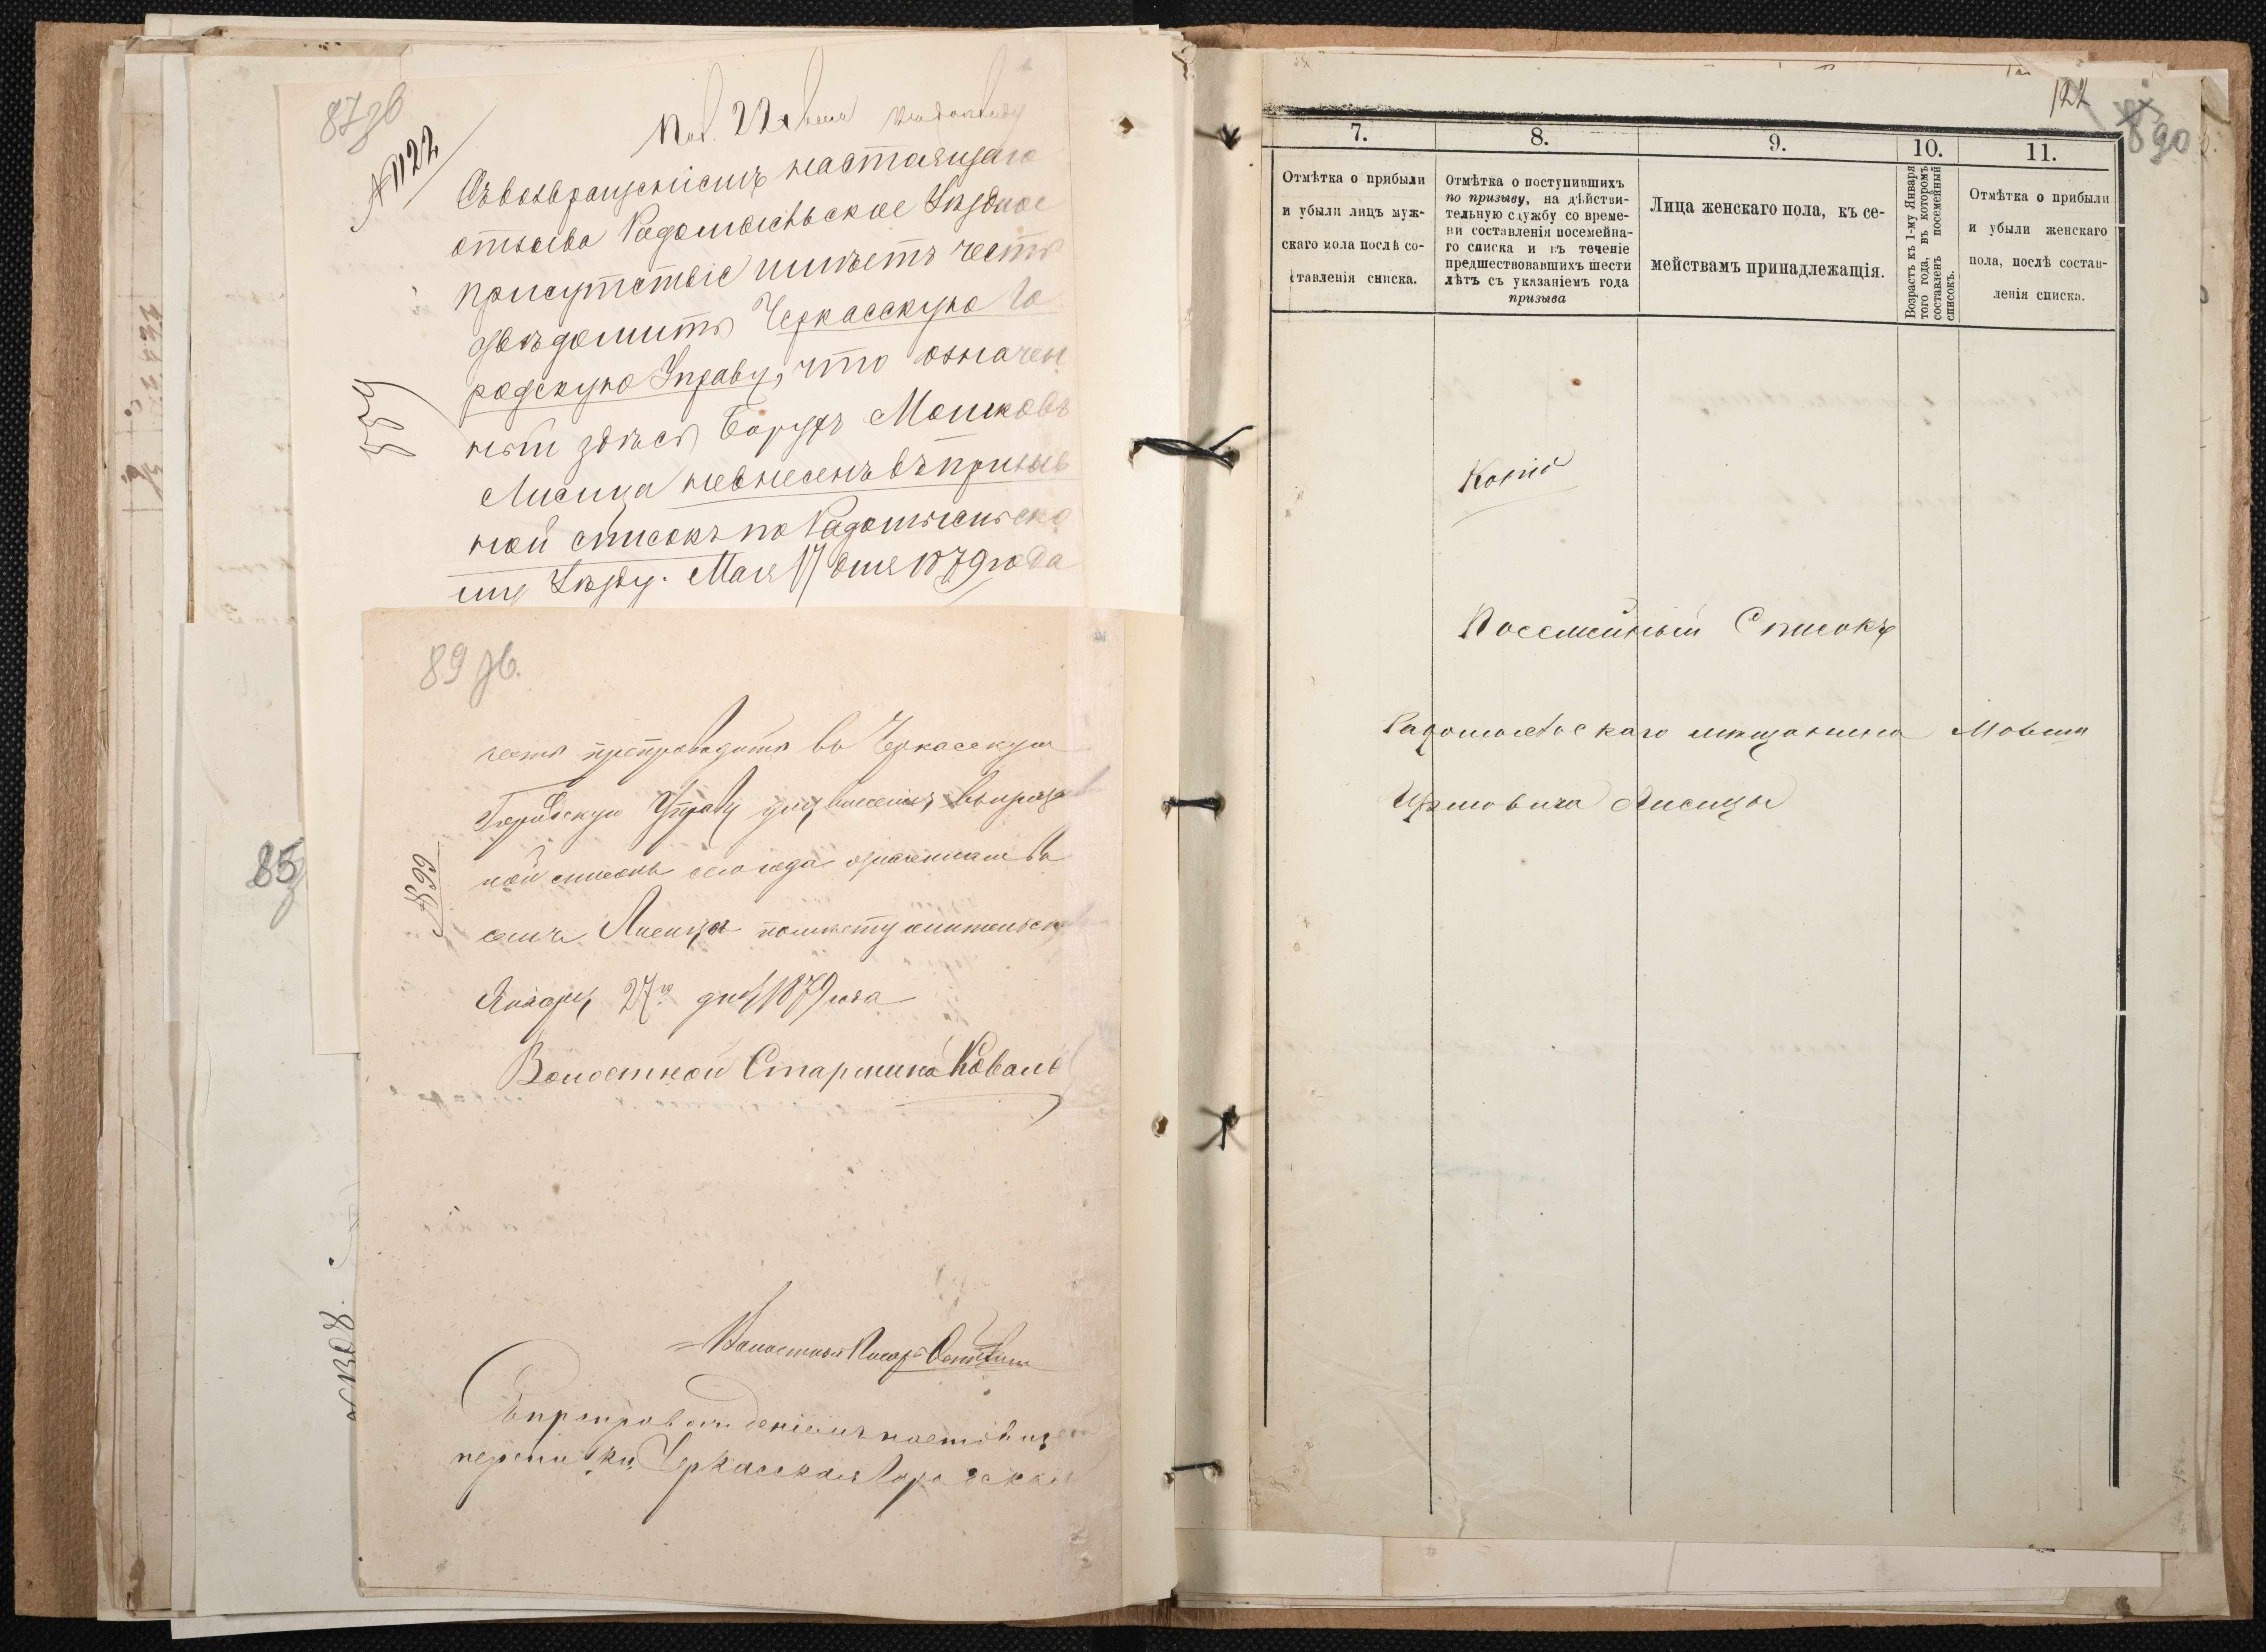 87 зв
№ 1122
Съ возвращеніемъ настоящаго
отзыва Радомысльское Уѣздное
присутствіе имѣетъ честь
увѣдомить Черкасскую Го
родскую Управу, что означен
ный здѣсь Борухъ Мошковъ
Лисица невнесенъ въ призыв
ной списокъ по Радомысльско
му Уѣзду. Мая 17 дня 1879 года
89 зв.
честь препроводить въ Черкасскую
Городскую Управу для внесенія въ призыв
ной списокъ сего года
Лисица по мѣсту жительства
Января 27го дня 1879 года
Волостной Старшина Коваль
№ 99
Волостной Писарь
Съ препровожденіемъ настоящей
переписки Черкасская Городская
85
122
90
7.
Отмѣтка о прибыли
и убыли лицъ муж-
скаго пола послѣ со-
ставленія списка.
8.
Отмѣтка о поступившихъ
по призыву, на дѣйстви-
тельную службу со време-
ни составленія посемейна-
го списка и въ теченіе
предшествовавшихъ шести
лѣтъ съ указаніемъ года
призыва
9.
Лица женскаго пола, къ се-
мействамъ принадлежащія.
10.
Возрастъ къ 1-му Января
того года, въ которомъ
составленъ посемейный
списокъ.
11.
Отмѣтка о прибыли
и убыли женскаго
пола, послѣ состав-
ленія списка.
Копія
Посемейный Списокъ
Радомысльскаго мѣщанина Мовши
Лисицы